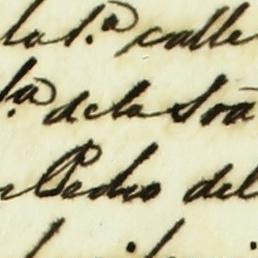 la 1.ª calle
1.ª de la Soa
Pedro del